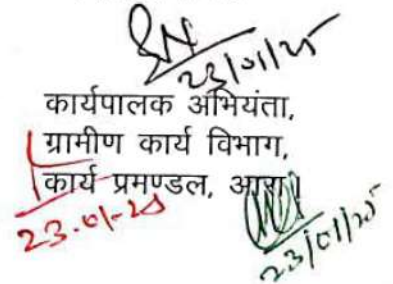 23/01/25
कार्यपालक अभियंता,
ग्रामीण कार्य विभाग,
कार्य प्रमण्डल, आरा।
23.01-25
23/01/25